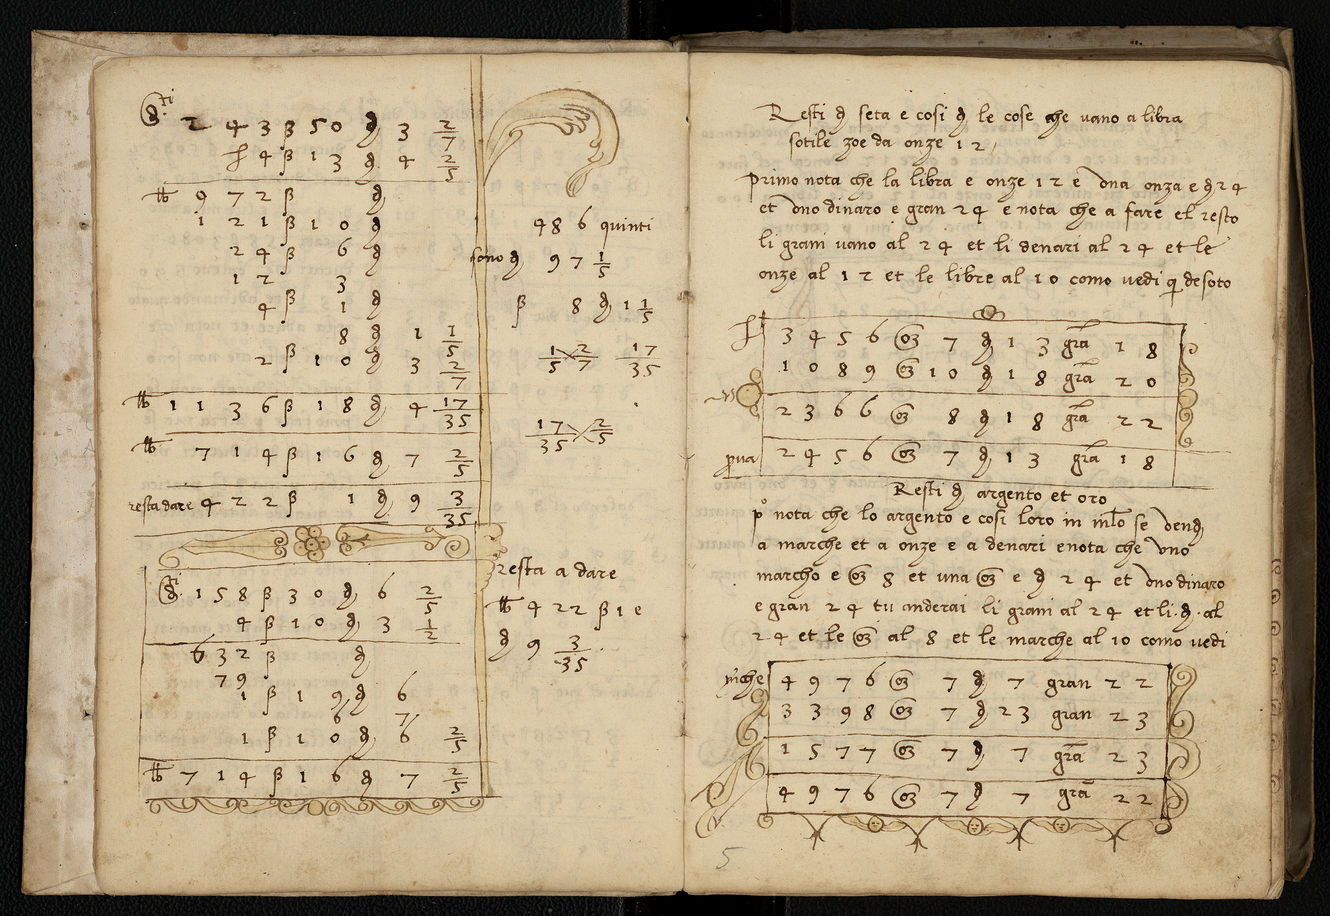 8.ti 2 4 3 3 50 ₰ 3 2/7
£ 4 ß 1 3 ₰ 4 2/5
℔ 9 7 2 ß ₰
1 2 1 ß 1 0 ₰
2 4 ß 6 ₰
1 2 3
4 ß 1 ₰
8 ₰ 1 1/5
2 ß 1 0 ₰ 3 2/7
℔ 1 1 3 6 ß 1 8 ₰ 4 17/35
℔ 7 1 4 ß 1 6 ₰ 7 2/5
resta dare 4 2 2 ß 1 ₰ 9 3/35
8.ti 1 5 8 ß 3 0 ₰ 6 2/5
4 ß 1 0 ₰ 3 1/2
6 3 2 ß ₰
7 9
1 ß 1 9 ₰ 6
6 7
1 ß 1 0 ₰ 6 2/5
℔ 7 1 4 ß 1 6 ₰ 7 2/5
4 8 6 quinti
sono ₰ 9 7 1/5
ß 8 ₰ 1 1/5
1/5 × 2/7 17/35
17/35 × 2/5
resta a dare
℔ 4 2 2 ß 1 e
₰ 9 3/35
Resti ₰ seta e cosi ₰ le cose che vano a libra
sotile zoe da onze 1 2
primo nota che la libra e onze 1 2 e una onza e ₰ 2 4
et uno dinaro e gran 2 4 e nota che a fare el resto
li grani vano al 2 4 et li denari al 2 4 et le
onze al 1 2 et le libre al 1 0 como vedi q desoto
£ 3 4 5 6 oz 7 ₰ 1 3 gra 1 8
1 0 8 9 oz 1 0 ₰ 1 8 gra 2 0
2 3 6 6 oz 8 ₰ 1 8 gra 2 2
prva 2 4 5 6 oz 7 ₰ 1 3 gra 1 8
Resti ₰ argento et oro
po nota che lo argento e cosi loro in mlo se dend
a marche et a onze e a denari e nota che uno
marcho e oz 8 et una oz e ₰ 2 4 et uno dinaro
e gran 2 4 tu anderai li grani al 2 4 et li ₰ al
2 4 et le oz al 8 et le marche al 10 como vedi
mche 4 9 7 6 oz 7 ₰ 7 gran 2 2
3 3 9 8 oz 7 ₰ 2 3 gran 2 3
1 5 7 7 oz 7 ₰ 7 gra 2 3
4 9 7 6 oz 7 ₰ 7 gra 2 2
5